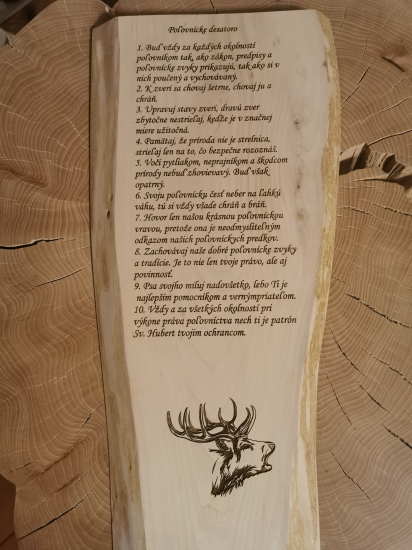 Poľovnícke desatoro
1. Buď vždy za každých okolností
poľovníkom tak, ako zákon, predpisy a
poľovnícke zvyky prikazujú, tak ako si v
nich poučený a vychovávaný.
2. K zveri sa chovaj šetrne, chovaj ju a
chráň.
3. Upravuj stavy zveri, dravú zver
zbytočne nestrieľaj, keďže je v značnej
miere užitočná.
4. Pamätaj, že príroda nie je strelnica,
strieľaj len na to, čo bezpečne rozoznáš.
5. Voči pytliakom, neprajníkom a škodcom
prírody nebuď zhovievavý. Buď však
opatrný.
6. Svoju poľovnícku česť neber na ľahkú
váhu, tú si vždy všade chráň a bráň.
7. Hovor len našou krásnou poľovníckou
vravou, pretože ona je neodmysliteľným
odkazom našich poľovníckych predkov.
8. Zachovávaj naše dobré poľovnícke zvyky
a tradície. Je to nie len tvoje právo, ale aj
povinnosť.
9. Psa svojho miluj nadovšetko, lebo Ti je
najlepším pomocníkom a verným priateľom.
10. Vždy a za všetkých okolností pri
výkone práva poľovníctva nech ti je patrón
Sv. Hubert tvojim ochrancom.